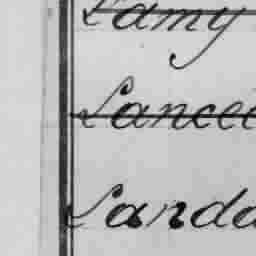 Lamy
Lancel
Landa